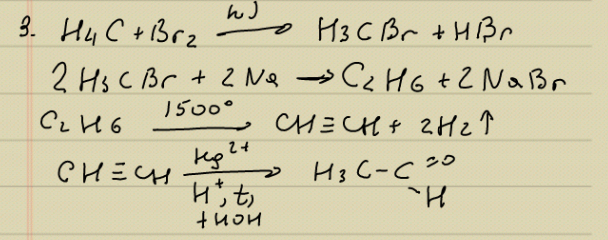 3. H4C + Br2 —hν→ H3CBr + HBr
2H3CBr + 2Na → C2H6 + 2NaBr
C2H6 —1500°→ CH≡CH + 2H2↑
CH≡CH —Hg2+ / H+, t, +HOH→ H3C-C=O
-H